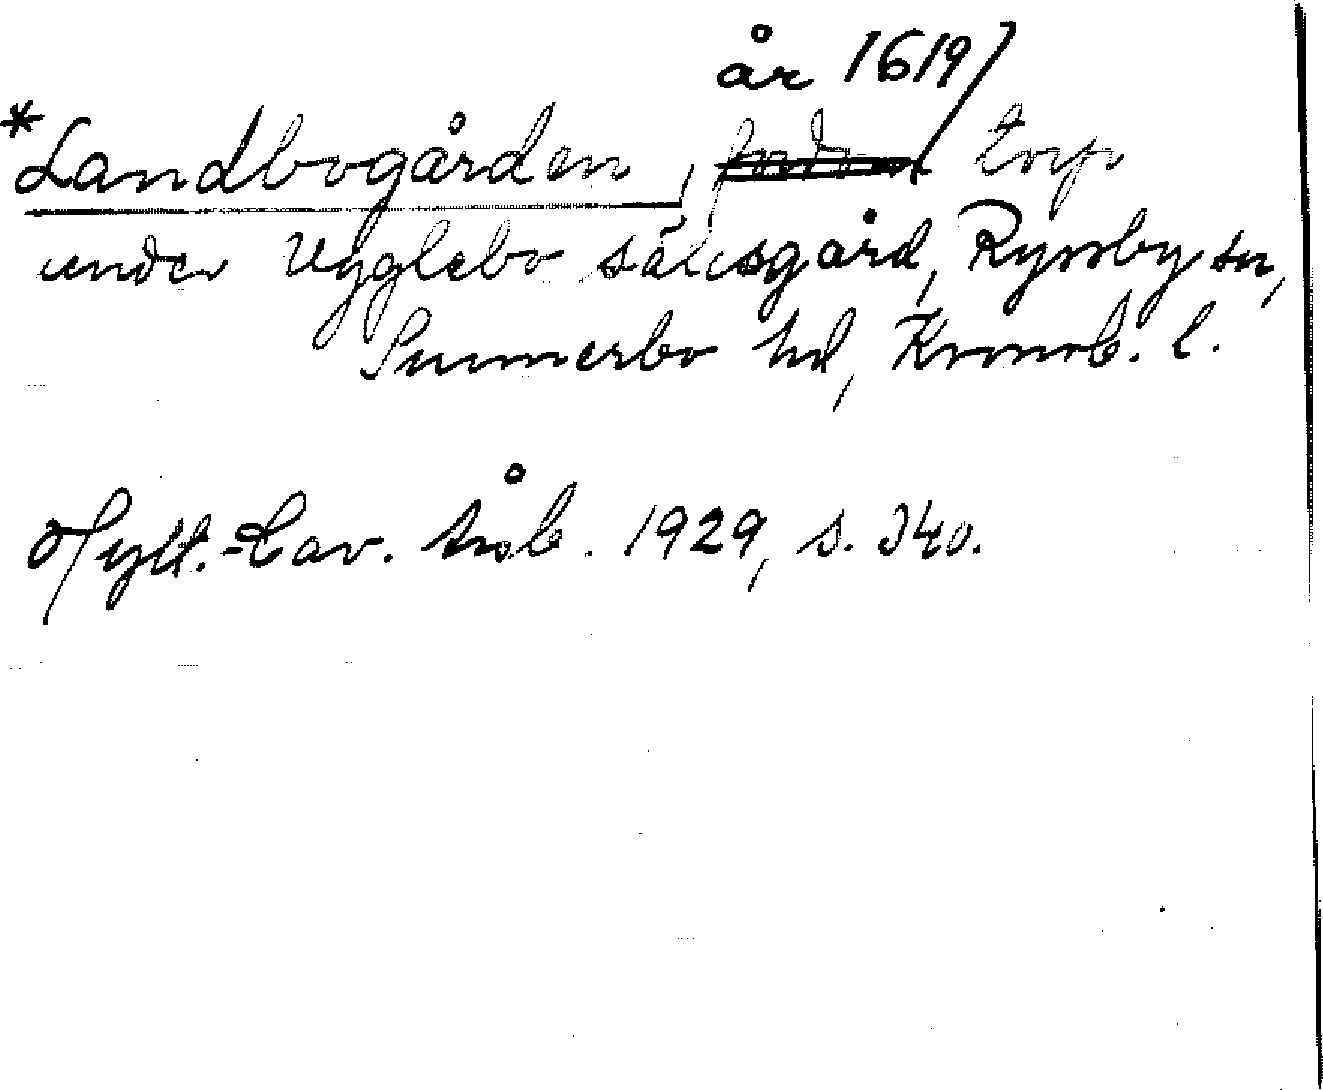 år 1619
*Landbogården, fordom torp
under Ugglebo sätesgård, Ryssby sn,
Sunnerbo hd, Kronob. l.
Hylt.-Cav. Årsb. 1929, s. 340.